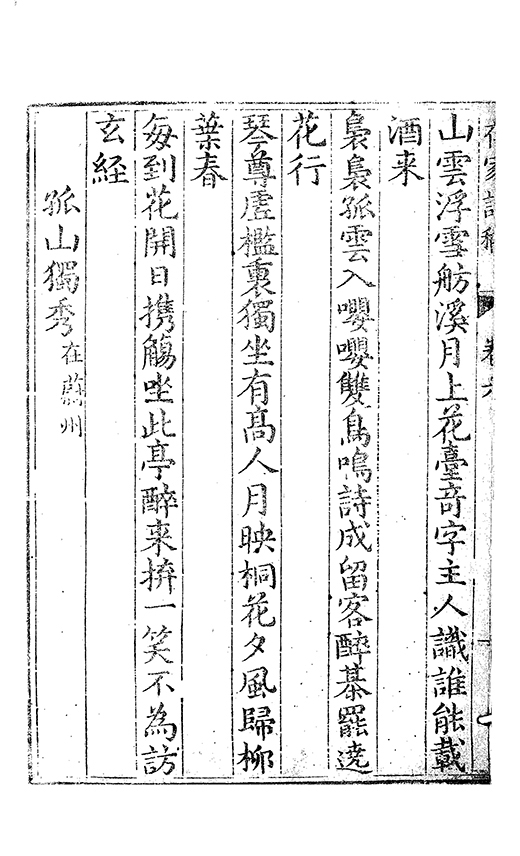 山雲浮雪舫溪月上花臺竒字主人識誰能載
酒来
裊裊孤雲入嚶嚶雙鳥鳴詩成留客醉棊罷遶
花行
琴尊虗檻裏獨坐有髙人月映桐花夕風歸栁
葉春
每到花開日携觴坐此亭醉来拚一笑不為訪
玄経
孤山獨秀在蔚州